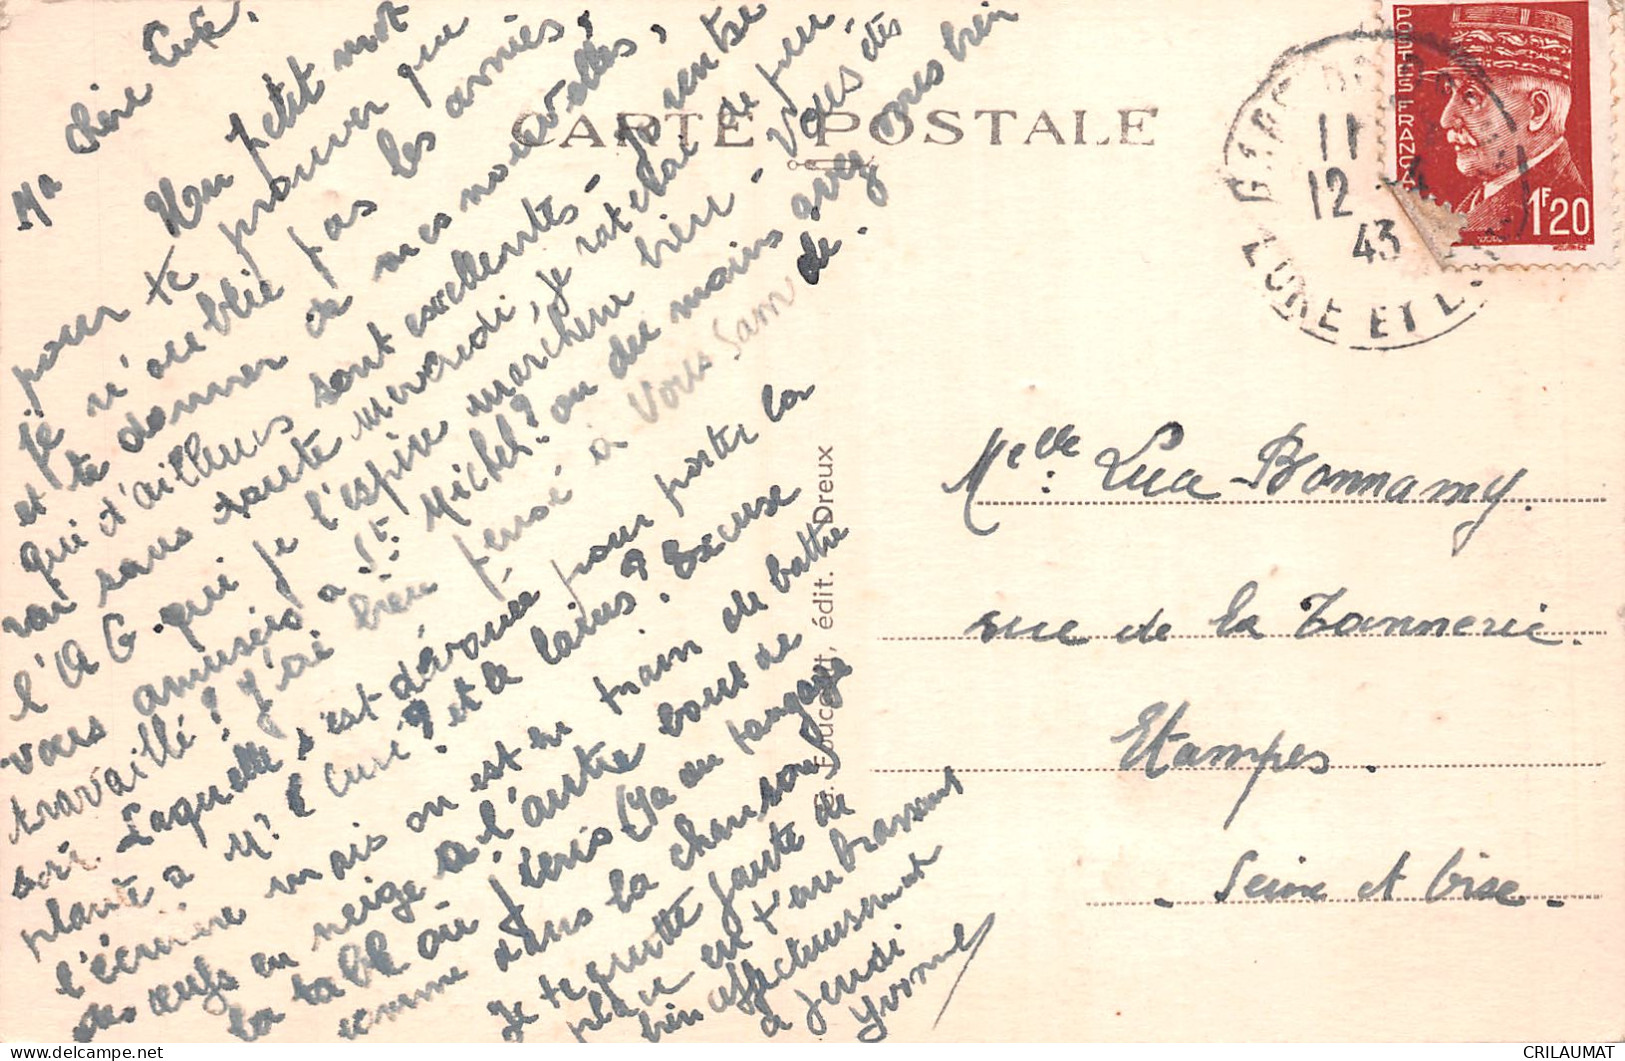 Ma chère Luce.
Un petit mot
pour te prouver que
je n'oublie pas les amies,
et te donner de mes nouvelles,
qui d'ailleurs sont excellentes -
sans doute mercredi, je
l'AG. qui je l'espère marchera bien - Vous êtes
vous amusées à St. Michel? ou du moins avez vous bien
travaillé? J'ai bien pensé à Vous Sam de.
soir Laquelle s'est dévouée pour porter la
plante à Mr. l Curé? et la laius? Excuse
l'écriture mais on est en train de battre
des œufs en neige à l'autre bout de
la table où j'écris (Ya du tangage
comme dans la chanson)
Je te quitte faute de
place en t'embrassant
bien affectueusement
à jeudi
Yvonne
CARTE POSTALE
édit. Dreux
GARE DE
11
12
43
EURE ET L
POSTES FRANÇAISES
1F20
Melle. Luce Bonnamy.
rue de la Tannerie.
Etampes.
- Seine et Oise -
CRILAUMAT